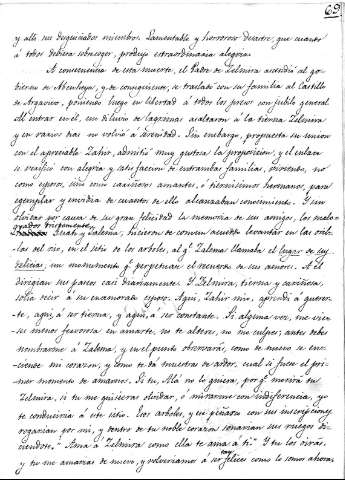 69
y allí sus desquiciados miembros. Lamentable y horroroso desastre, que cuanto
á todos debiera sobrecoger, produjo extraordinaria alegría.
A consecuencia de esta muerte, el Padre de Zelmira ascendió al go-
bierno de y de consiguiente, se trasladó con su familia al Castillo
de poniendo luego en libertad á todos los presos con jubilo general.
Al entrar en el, un diluvio de lagrimas asaltaron á la tierna Zelmira
y en vano tras su volvió á serenidad. Sin embargo, propuesta su union
con el apreciable Zahir, admitió muy gustosa la proposicion, y el enlace
se verificó con alegria y satisfaccion de entrambas familias, viviendo, no
como esposos, sino como cariñosos amantes, ó tiernisimos hermanos, para
ejemplar y envidia de cuantos de ella alcanzaban conocimiento. Y sin
olvidar por causa de su gran felicidad la memoria de sus amigos, los malo-
grados
y Zalema, hicieron de comun acuerdo levantar en las orilla-
las del rio, en el sitio de los arboles, al q.e Zalema llamaba el lugar de sus
delicias, un monumento q.e perpetuase el recuerdo de sus amores. A él
dirigian sus paseos casi diariamente. Y Zelmira, tierna y cariñosa,
solia decir á su enamorado esposo: Aqui, Zahir mio, aprendí á querer-
te, aqui, á ser tierna, y aqui, á ser constante. Si alguna vez, me vieses
menos fervorosa en amarte, no te alteres, no me culpes; antes debes
nombrarme á Zalema, y en el punto observarás, como de nuevo se en-
ciende mi corazon, y como te dá muestras de ardor, cual si fuese el pri-
mer momento de amarnos. Si tu, Alá no lo quiera, por q.e moriria tu
Zelmira, si tu me quisieras olvidar, ó mirarme con indiferencia, yo
te conduciria á este sitio. Esos arboles, y esa piedra con sus inscripciones
rogarian por mi, y dentro de tu noble corazon sonarian sus ruegos di-
ciendote: "Ama á Zelmira como ella te ama á ti." Y tu los oirás,
y tu me amarias de nuevo, y volveriamos á ser tan felices como lo somos ahora,